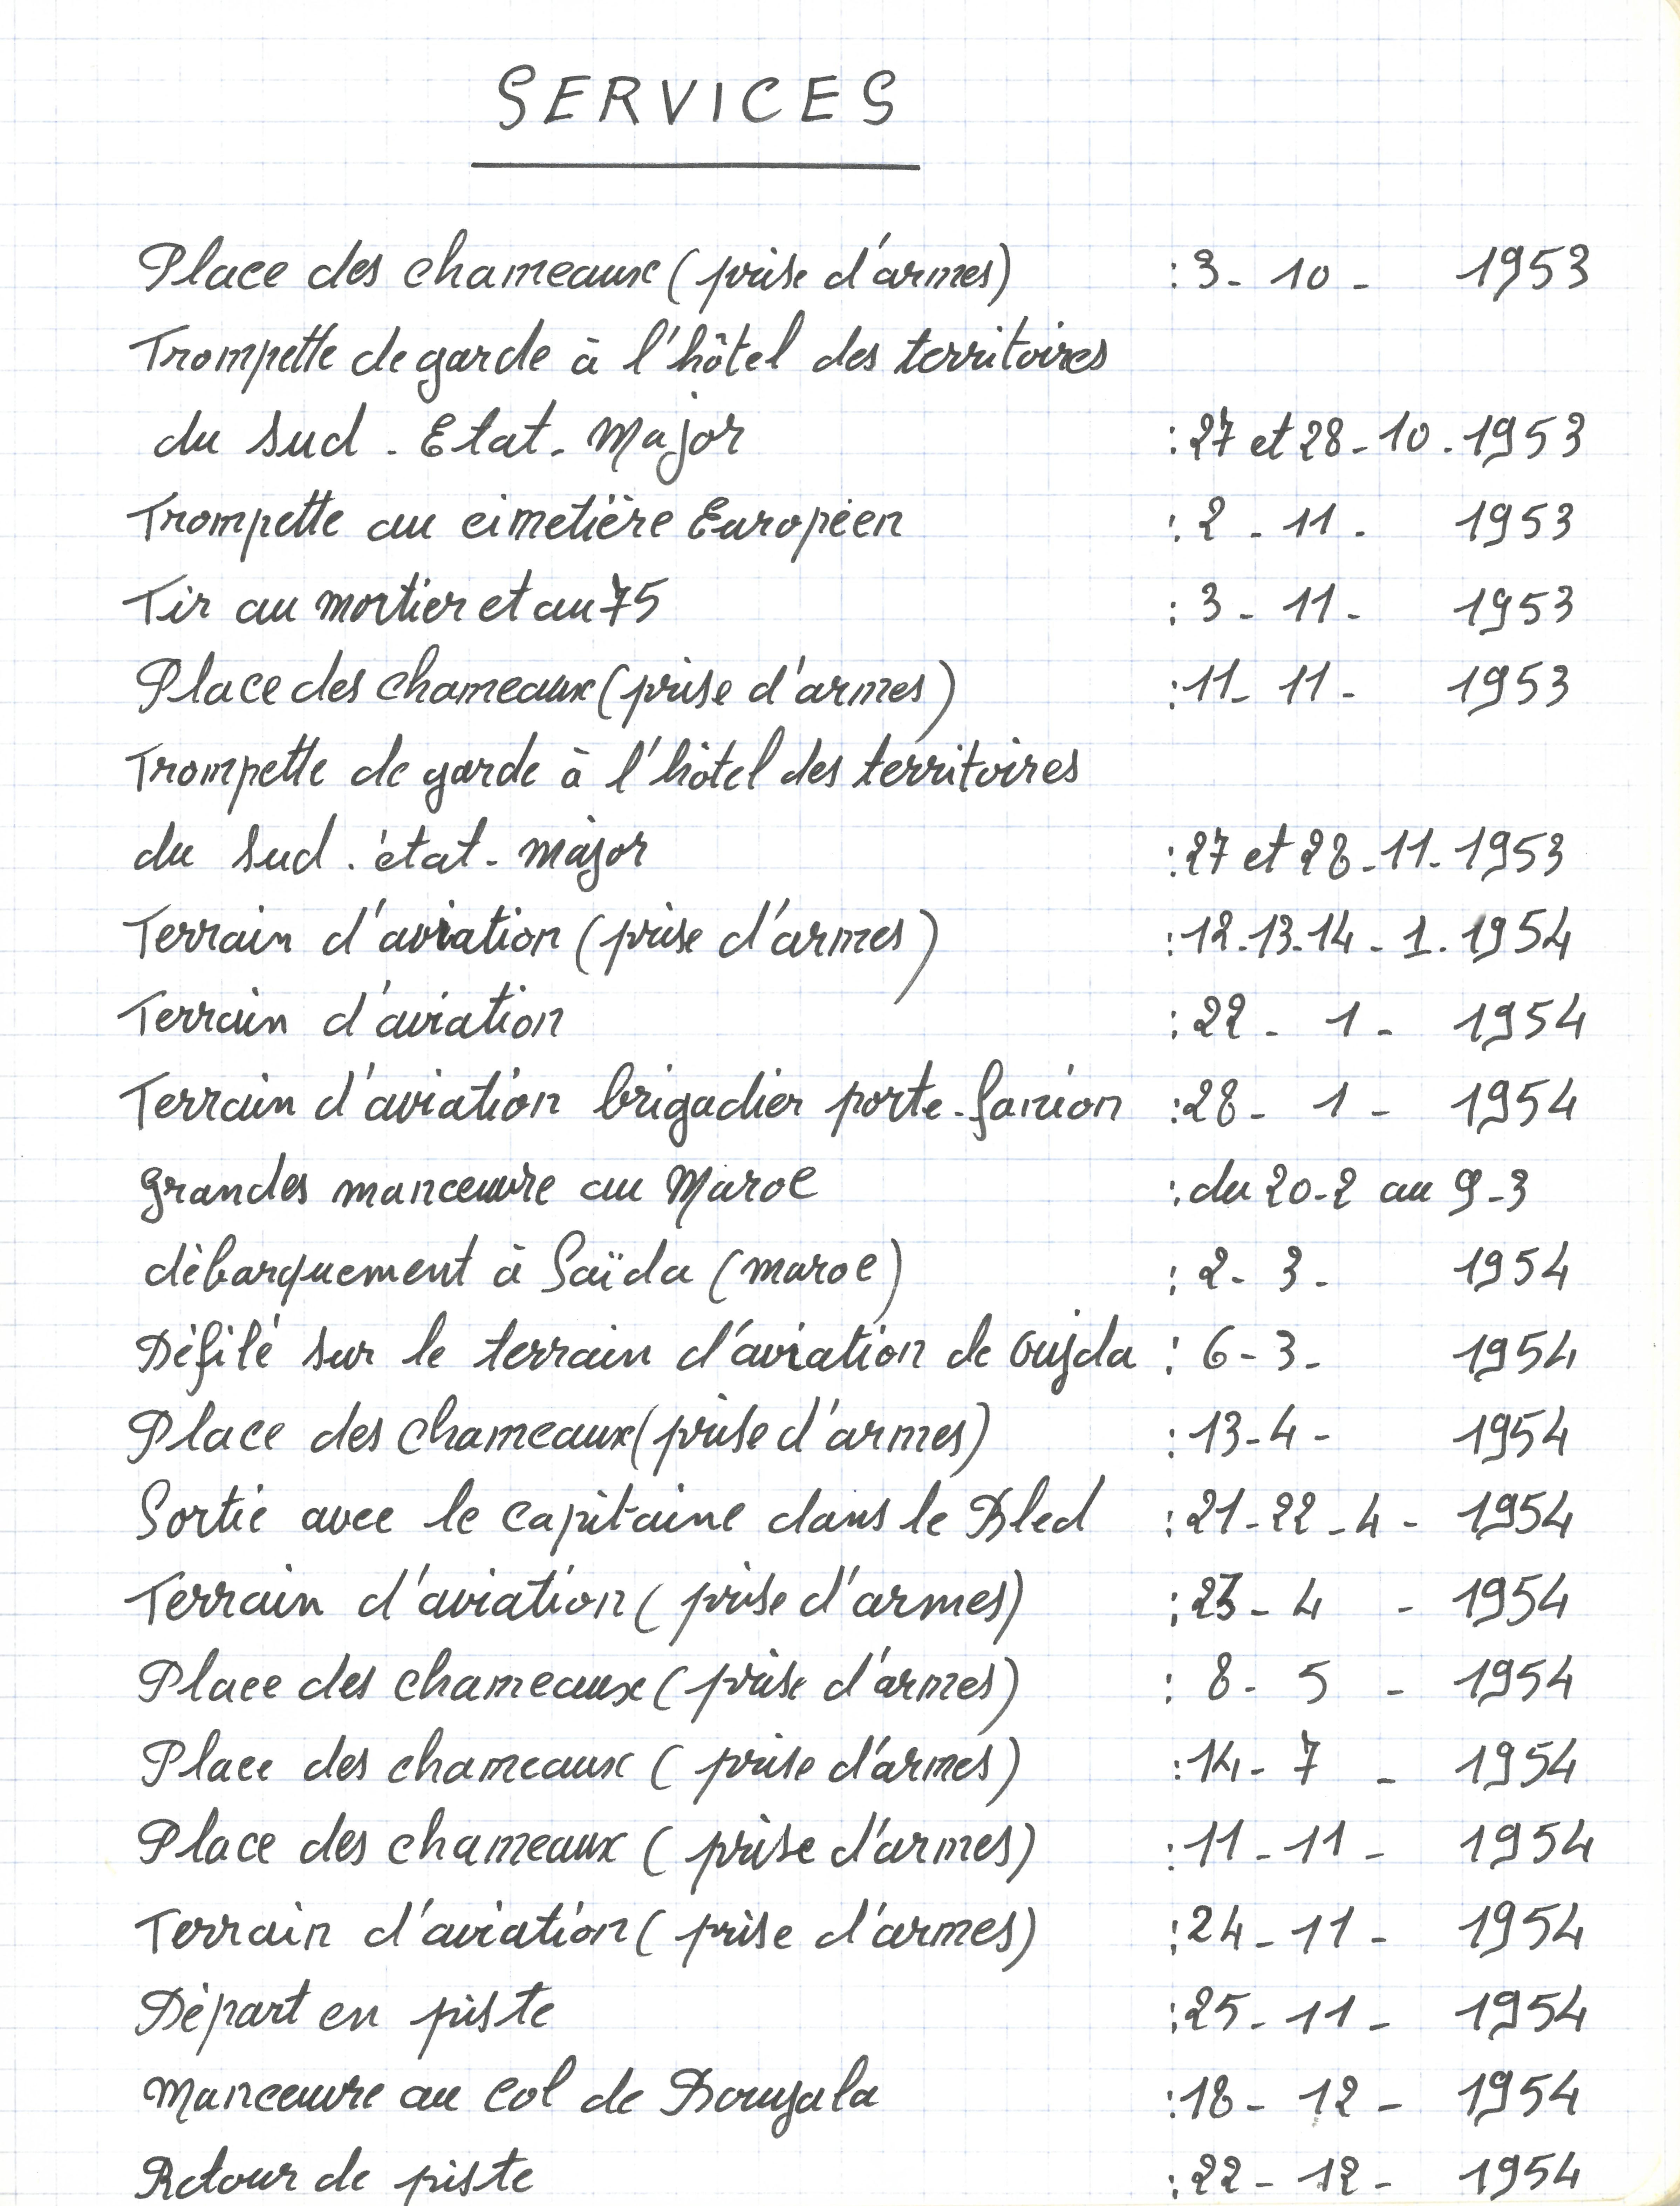 SERVICES
Place des chameaux (prise d'armes) : 3 - 10 - 1953
Trompette de garde à l'hôtel des territoires
du sud - Etat - Major : 27 et 28 - 10 . 1953
Trompette au cimetière Européen : 2 - 11 - 1953
Tir au mortier et au 75 : 3 - 11 - 1953
Place des chameaux (prise d'armes) : 11 - 11 - 1953
Trompette de garde à l'hôtel des territoires
du sud . état - major : 27 et 28 - 11 - 1953
Terrain d'aviation (prise d'armes) : 12.13.14 - 1. 1954
Terrain d'aviation : 22 - 1 - 1954
Terrain d'aviation brigadier porte-fanion : 28 - 1 - 1954
grandes manœuvre au Maroc : du 20-2 au 9-3
débarquement à Saïda (maroc) : 2 - 3 - 1954
Défilé sur le terrain d'aviation de Oujda : 6 - 3 - 1954
Place des chameaux (prise d'armes) : 13 - 4 - 1954
Sortie avec le capitaine dans le Bled : 21 - 22 - 4 - 1954
Terrain d'aviation (prise d'armes) : 23 - 4 - 1954
Place des chameaux (prise d'armes) : 8 - 5 - 1954
Place des chameaux (prise d'armes) : 14 - 7 - 1954
Place des chameaux (prise d'armes) : 11 - 11 - 1954
Terrain d'aviation (prise d'armes) : 24 - 11 - 1954
Départ en piste : 25 - 11 - 1954
Manœuvre au col de : 18 - 12 - 1954
Retour de piste : 22 - 12 - 1954